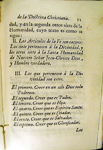 de la Doctrina Christiana.
dad, y en la segunda otros siete de la
Humanidad, cuyo texto es como se
sigue.
Los Articulos de la Fé son catorce.
Los siete pertenecen á la Divinidad, y
los otros siete á la Santa Humanidad
de Nuestro Señor Jesu-Christo Dios
y Hombre verdadero.
Los que pertenecen á la Di-
vinidad son estos.
El primero, Creer en un solo Dios todo
Poderoso.
El segundo, Creer que es Padre.
El tercero, Creer que es Hijo.
El quarto, Creer que es Espiritu
Santo.
El quinto, Creer que es Criador.
El sexto, Creer que es Salvador.
El septimo, Creer que es Glorificador.
Los